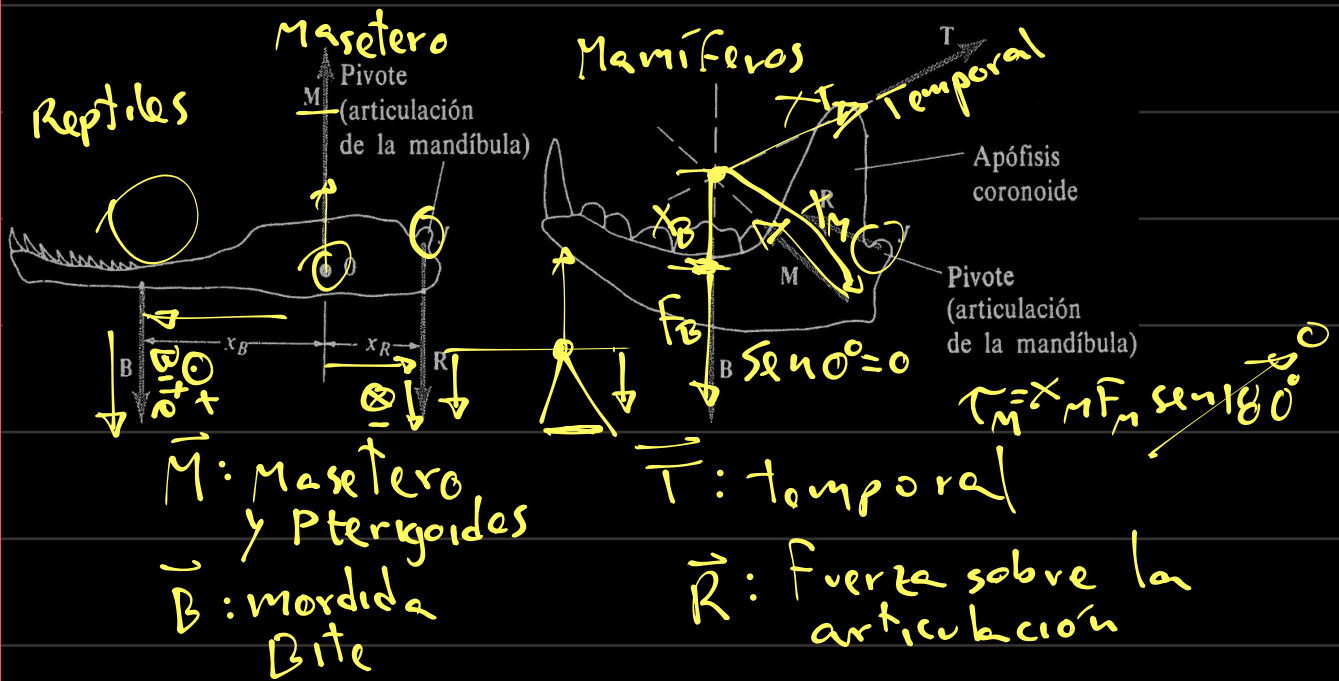 Masetero
Pivote
(articulación
de la mandíbula)
M
Reptiles
O
x_B
x_R
B
R
+
-
Mamíferos
T
Temporal
x_T
Apófisis
coronoide
x_B
x_M
R
M
Pivote
(articulación
de la mandíbula)
F_B
B
sen 0° = 0
τ_M = x_M F_M sen 180°
0
M: Masetero
y Pterigoides
B: mordida
Bite
T: temporal
R: Fuerza sobre la
articulación